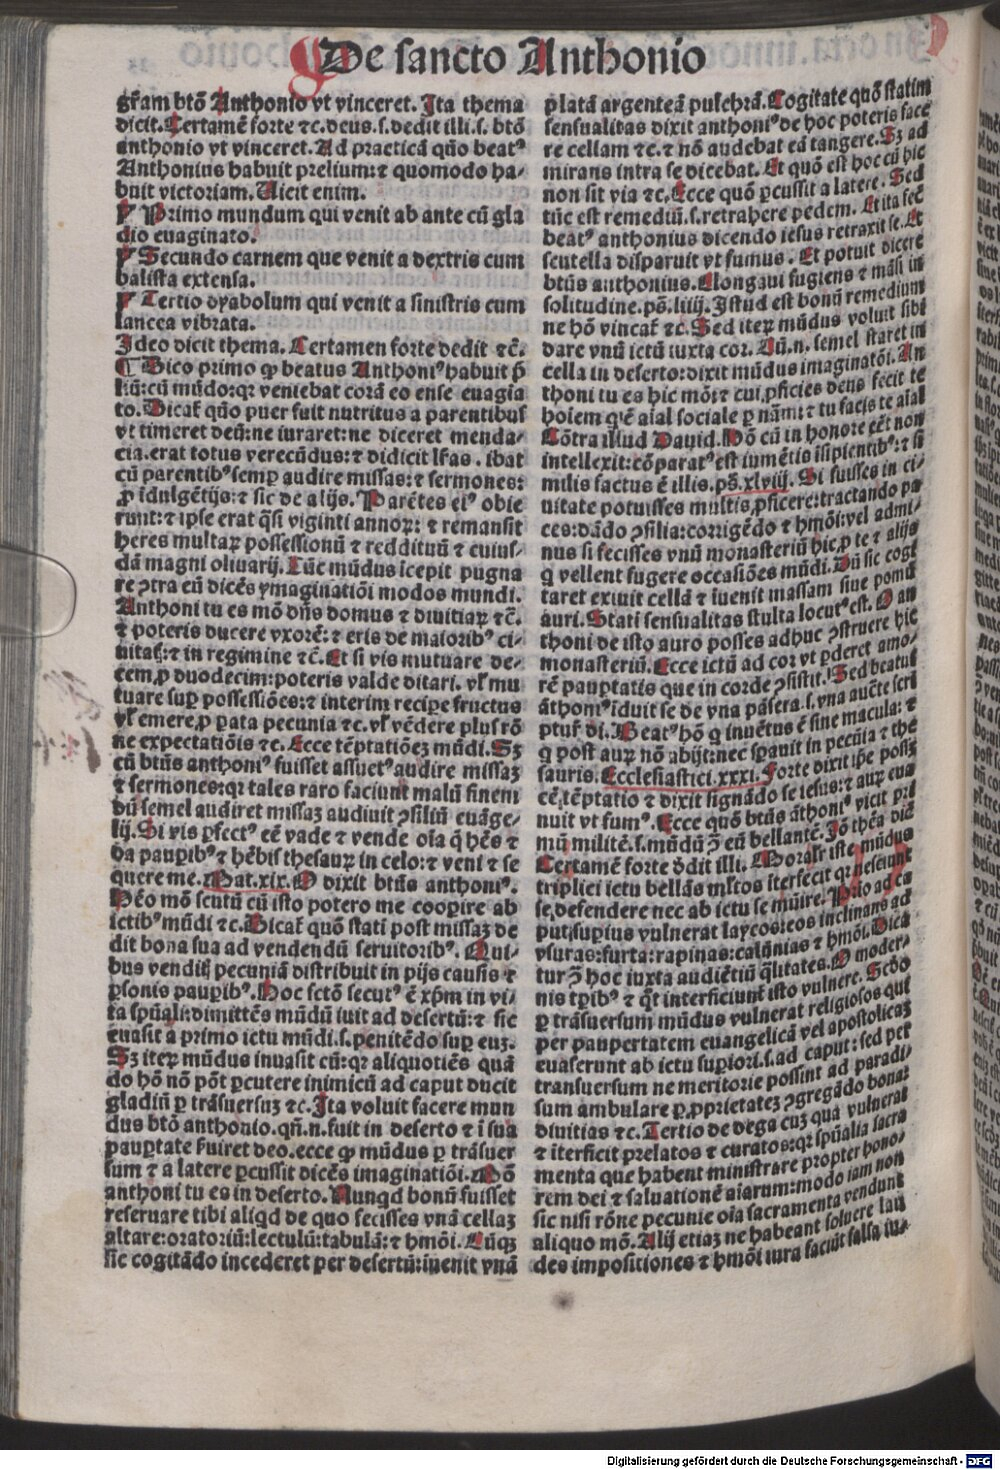 De sancto Anthonio
gr̄am btō Anthonio vt vinceret. Ita thema
dicit. Certamē forte ⁊c. deus .s. dedit illi .s. btō
anthonio vt vinceret. Ad practicā qūo beatꝰ
Anthonius habuit prelium: ⁊ quomodo ha⸗
buit victoriam. Uicit enim.
Primo mundum qui venit ab ante cū gla
dio euaginato.
Secundo carnem que venit a dextris cum
balista extensa.
Tertio dyabolum qui venit a sinistris cum
lancea vibrata.
Ideo dicit thema. Certamen forte dedit ⁊c̄.
¶ Dico primo ꝙ beatus Anthoniꝰ habuit p̄
liū: cū mūdo: qꝛ veniebat corā eo ense euagia
to. Dicat̄ qūo puer fuit nutritus a parentibus
vt timeret deū: ne iuraret: ne diceret menda⸗
cia. erat totus verecūdus: ⁊ didicit lr̄as . ibat
cū parentibꝰ semꝑ audire missas: ⁊ sermones:
ꝓ īdulgētijs: ⁊ sic de alijs. Parētes eiꝰ obie
runt: ⁊ ipse erat q̄si viginti annoꝝ: ⁊ remansit
heres multaꝝ possessionū ⁊ reddituū ⁊ cuius⸗
dā magni oliuarij. Tūc mūdus īcepit pugna
re ꝯtra eū dicēs ymaginatiōi modos mundi.
Anthoni tu es mō dn̄s domus ⁊ diuitiaꝝ ⁊c̄.
⁊ poteris ducere vxorē: ⁊ eris de maioribꝰ ci⸗
uitat̄: ⁊ in regimine ⁊c̄. Et si vis mutuare de⸗
cem, ꝓ duodecim: poteris valde ditari. vl̓ mu
tuare suꝑ possessiōes: ⁊ interim recipe fructus
vl̓ emere, ꝓ parata pecunia ⁊c. vl̓ vēdere plus rō
ne expectatiōis ⁊c. Ecce tēptatiōeꝫ mūdi. Sꝫ
cū btūs anthoniꝰ fuisset assuetꝰ audire missaꝫ
⁊ sermones: qꝛ tales raro faciunt malū finem
dū semel audiret missaꝫ audiuit ꝯsiliū euāge⸗
lij. Si vis ꝑfectꝰ eē vade ⁊ vende oīa q̄ hēs ⁊
da pauꝑibꝰ ⁊ hēbis thesauꝝ in celo: ⁊ veni ⁊ se
quere me. Mat. xix. O dixit btūs anthoniꝰ.
Hēo mō scutū cū isto potero me cooꝑire ab
ictibꝰ mūdi ⁊c. Dicat̄ quō stati post missaꝫ de
dit bona sua ad vendendū seruitoribꝰ. Qui⸗
bus venditis pecuniā distribuit in pijs causis ⁊
ꝑsonis pauꝑibꝰ. Hoc fctō secutꝰ ē xp̄m in vi⸗
ta spūali: dimittēs mūdū iuit ad desertū: ⁊ sic
euasit a primo ictu mūdi .s. penitēdo suꝑ euꝫ.
Sꝫ iteꝝ mūdus inuasit cū: qꝛ aliquotiēs quā
do hō nō pōt ꝑcutere inimicū ad caput ducit
gladiū ꝑ trāsuersuꝫ ⁊c. Ita voluit facere mun
dus btō anthonio. qn̄ .n. fuit in deserto ⁊ ī sua
pauꝑtate ẜuiret deo. ecce ꝙ mūdus ꝑ trāsuer
sum ⁊ a latere ꝑcussit dicēs imaginatiōi. Mō
anthoni tu es in deserto. Nunqd bonū fuisset
reseruare tibi aliqd de quo fecisses vnā cellaꝫ
altare: oratoriū: lectulū: tabulā: ⁊ hmōi. Cūqꝫ
sic cogitādo incederet per desertū: iuenit vnā
platā argenteā pulchrā. Cogitate quō statim
sensualitas dixit anthoniꝰ de hoc poteris face
re cellam ⁊c. ⁊ nō audebat eā tangere. Sꝫ ad
mirans intra se dicebat. Et quō est hoc cū hic
non sit via ⁊c. Ecce quō ꝑcussit a latere. Sed
tūc est remediū .s. retrahere pedem. Et ita fec̄
beatꝰ anthonius dicendo iesus retraxit se. Et
scutella disparuit vt fumus. Et potuit dicere
btūs anthonius. Elongaui fugiens ⁊ māsi in
solitudine. ps̄. liiij. Istud est bonū remedium
ne hō vincat̄ ⁊c. Sed iteꝝ mūdus voluit sibi
dare vnū ictū iuxta cor. Cū .n. semel staret in
cella in deserto: dixit mūdus imaginatōi. An
thoni tu es hic mō: ⁊ cui, ꝓficies deus fecit te
hoiem q̄ ē aīal sociale ꝑ nām: ⁊ tu facis te aīal
Cōtra illud Dauid. Hō cū in honore eēt non
intellexit: cōparatꝰ est iumētis īsipientibꝰ: ⁊ si
milis factus ē illis. ps̄. xlviij. Si fuisses in ci⸗
uitate potuisses multis, ꝓficere: tractando pa
ces: dādo ꝯsilia: corrigēdo ⁊ hmōi: vel admi⸗
nus si fecisses vnū monasteriū hic, ꝓ te ⁊ alijs
q̄ vellent fugere occasiōes mūdi. Dū sic cogi
taret exiuit cellā ⁊ īuenit massam siue pomū
auri. Stati sensualitas stulta locutꝰ est. O an
thoni de isto auro posses adhuc ꝯstruere hic
monasteriū. Ecce ictū ad cor vt ꝑderet amo⸗
rē pauꝑtatis que in corde ꝯsistit. Sed beatus
āthoniꝰ īduit se de vna pāsera .s. vna auc̄te scri
ptur̄ di. Beatꝰ hō q inuētus ē sine macula: ⁊
q post auꝝ nō abijt: nec sꝑauit in pecūia ⁊ the
sauris. Ecclesiastici. xxxi. Forte dixit ip̄e possꝫ
eē, tēptatio ⁊ dixit signādo se iesus: ⁊ auꝝ eua
nuit vt fumꝰ. Ecce quō btūs āthoniꝰ vicit pri
mū militē .s. mūdū ꝯ̄ eū bellantē. Iō thēa dic̄
Certamē forte ddit illi. Moralr̄ iste mūdus
triplici ictu bellās mltos īterfecit qꝛ nesciunt
se, defendere nec ab ictu se mūire. Prīo ad ca
put, suꝑius vulnerat laycos: eos inclinans ad
vsuras: furta: rapinas: calūnias ⁊ hmōi. Dica
tur ꝯ̄ hoc iuxta audiētiū q̄litates. O moder⸗
nis tꝑibꝰ ⁊ qt̄ interficiunt̄ isto vulnere. Scdo
ꝑ trāsuersum mūdus vulnerat religiosos qui
per paupertatem euangelicā vel apostolicaꝫ
euaserunt ab ictu suꝑiori .s. ad caput: sed per
transuersum ne meritorie possint ad paradi⸗
sum ambulare ꝑ, ꝓprietateꝫ ꝯgregādo bona:
diuitias ⁊c. Tertio de dega cuꝫ qua vulnerat
⁊ īterficit prelatos ⁊ curatos: qꝛ spūalia sacra
menta que habent ministrare propter hono⸗
rem dei ⁊ saluationē aīarum: modo iam non
sic nisi rōne pecunie oīa sacramenta vendunt
aliquo mō. Alij etiaꝫ ne habeant soluere lau
des impositiones ⁊ hmōi iura faciūt falsa iu⸗
Digitalisierung gefördert durch die Deutsche Forschungsgemeinschaft - DFG